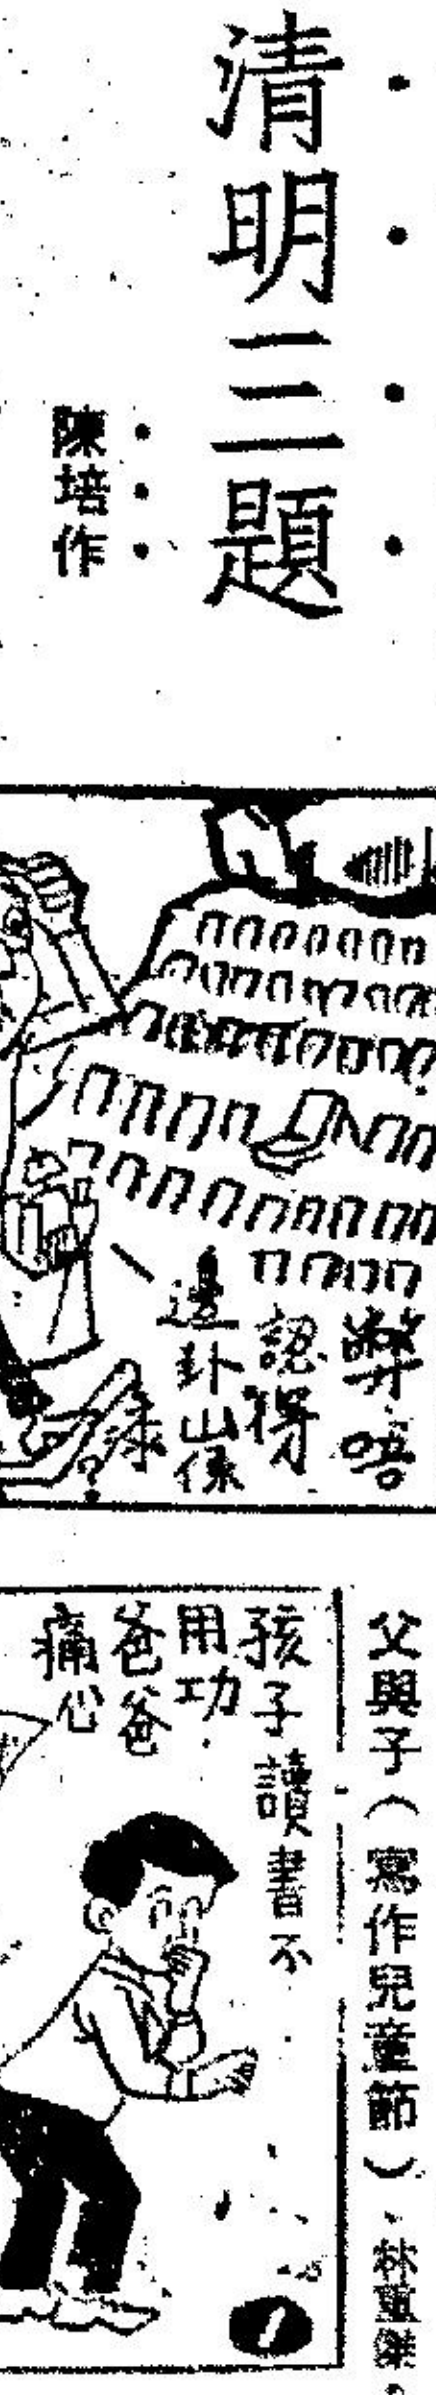 清明三題
陳培作
弊唔
認得
邊卦山係
添?
父與子(寫作兒童節)
孩子讀書不
用功.
爸爸
痛心
1